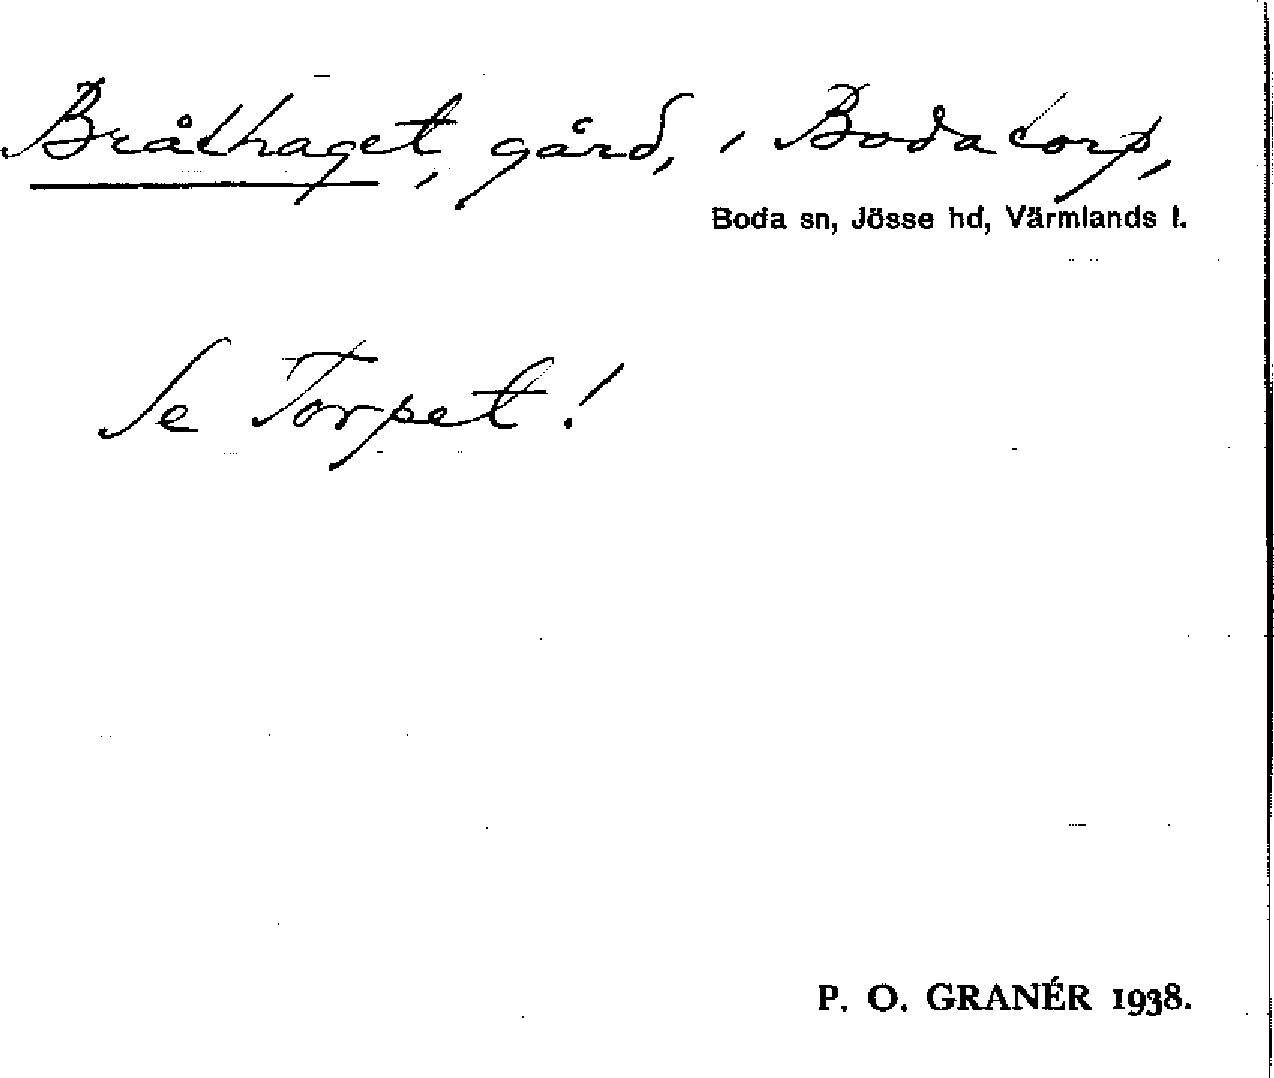 Bråthaget, gård, i Bodatorp,
Boda sn, Jösse hd, Värmlands l.
Se Torpet!
P. O. GRANÉR 1938.